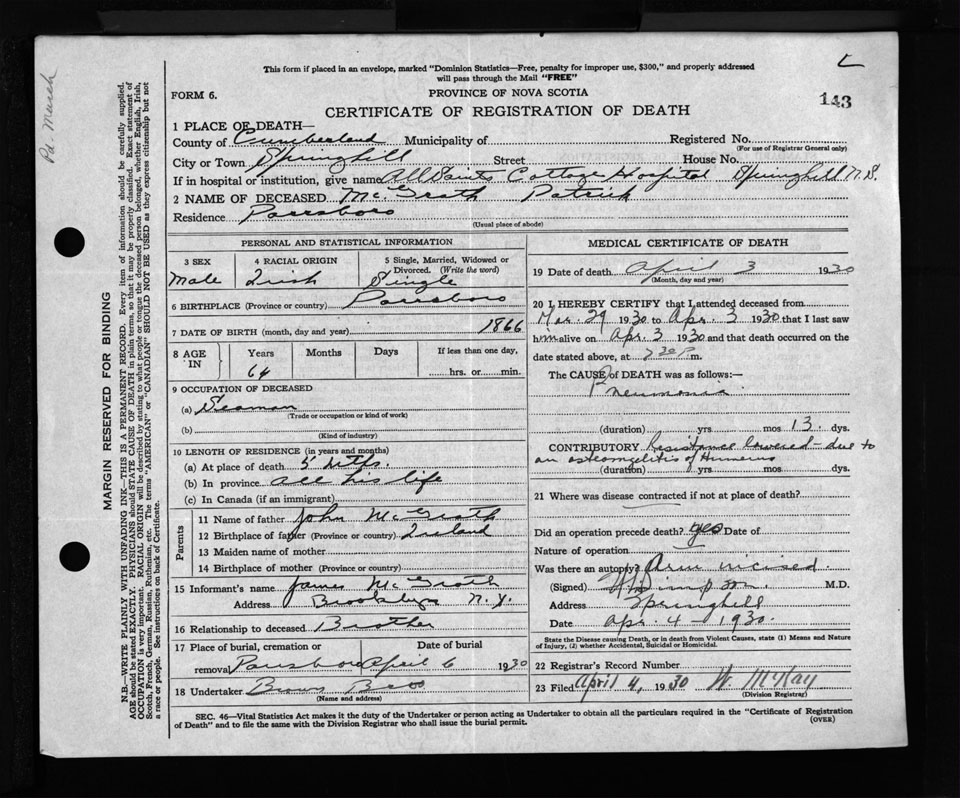 This form if placed in an envelope, marked "Dominion Statistics—Free, penalty for improper use, $300," and properly addressed
will pass through the Mail "FREE"
FORM 6.
PROVINCE OF NOVA SCOTIA
143
CERTIFICATE OF REGISTRATION OF DEATH
Pd. March
1 PLACE OF DEATH—
County of Cumberland Municipality of Registered No.
(For use of Registrar General only)
City or Town Springhill Street House No.
If in hospital or institution, give name All Saints Cottage Hospital Springhill N.S.
2 NAME OF DECEASED McGrath Patrick
Residence Parrsboro
(Usual place of abode)
PERSONAL AND STATISTICAL INFORMATION
3 SEX 4 RACIAL ORIGIN 5 Single, Married, Widowed or
Divorced. (Write the word)
Male Irish Single
6 BIRTHPLACE (Province or country) Parrsboro
7 DATE OF BIRTH (month, day and year) 1866
8 AGE IN Years Months Days If less than one day,
64 hrs. or min.
9 OCCUPATION OF DECEASED
(a) Seaman
(Trade or occupation or kind of work)
(b)
(Kind of industry)
10 LENGTH OF RESIDENCE (in years and months)
(a) At place of death 5
(b) In province all his life
(c) In Canada (if an immigrant)
Parents
11 Name of father John McGrath
12 Birthplace of father (Province or country) Ireland
13 Maiden name of mother
14 Birthplace of mother (Province or country)
15 Informant's name James McGrath
Address Brooklyn N.Y.
16 Relationship to deceased Brother
17 Place of burial, cremation or Date of burial
removal Parrsboro April 6 1930
18 Undertaker Bros
(Name and address)
MEDICAL CERTIFICATE OF DEATH
19 Date of death April 3 1930
(Month, day and year)
20 I HEREBY CERTIFY that I attended deceased from
Mar. 29 1930 to Apr. 3 1930 that I last saw
him alive on Apr. 3 1930 and that death occurred on the
date stated above, at 7 30 P. m.
The CAUSE of DEATH was as follows:—
Pneumonia
(duration) yrs mos 13 dys.
CONTRIBUTORY Resistance lowered – due to
an osteomyelitis of Humerus
(duration) yrs mos dys.
21 Where was disease contracted if not at place of death?
Did an operation precede death? yes Date of
Nature of operation
Was there an autopsy? Arm incised
(Signed) Simpson M.D.
Address Springhill
Date Apr. 4 – 1930.
State the Disease causing Death, or in death from Violent Causes, state (1) Means and Nature
of Injury, (2) whether Accidental, Suicidal or Homicidal.
22 Registrar's Record Number
23 Filed April 4, 1930 W. McKay
(Division Registrar)
SEC. 46—Vital Statistics Act makes it the duty of the Undertaker or person acting as Undertaker to obtain all the particulars required in the "Certificate of Registration
of Death" and to file the same with the Division Registrar who shall issue the burial permit. (OVER)
MARGIN RESERVED FOR BINDING
N.B.—WRITE PLAINLY WITH UNFADING INK—THIS IS A PERMANENT RECORD. Every item of information should be carefully supplied.
AGE should be stated EXACTLY. PHYSICIANS should STATE CAUSE OF DEATH in plain terms, so that it may be properly classified. Exact statement of
OCCUPATION is very important. RACIAL ORIGIN will be described by stating to what people or tongue the deceased person belonged, whether English, Irish,
Scotch, French, German, Russian, Ruthenian, etc. The terms "AMERICAN" or "CANADIAN" SHOULD NOT BE USED as they express citizenship but not
a race or people. See instructions on back of Certificate.